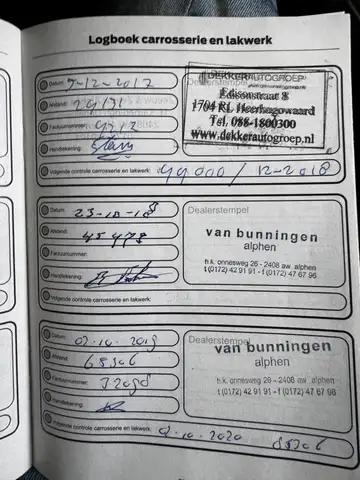 Logboek carrosserie en lakwerk
Datum: 7-12-2017
Afstand: 29131
Factuurnummer:
Handtekening:
Volgende controle carrosserie en lakwerk: 49.000 / 12-2018
Dealerstempel
DEKKERAUTOGROEP
Edisonstraat 8
1704 RL Heerhugowaard
Tel. 088-1800300
www.dekkerautogroep.nl
Datum: 23-10-18
Afstand: 45478
Factuurnummer:
Handtekening:
Volgende controle carrosserie en lakwerk:
Dealerstempel
van bunningen
alphen
h.k. onnesweg 26 - 2408 aw alphen
t (0172) 42 91 91 - f (0172) 47 67 96
Datum: 02-10-2019
Afstand: 65306
Factuurnummer:
Handtekening:
Volgende controle carrosserie en lakwerk: 02-10-2020 85306
Dealerstempel
van bunningen
alphen
h.k. onnesweg 26 - 2408 aw alphen
t (0172) 42 91 91 - f (0172) 47 67 96